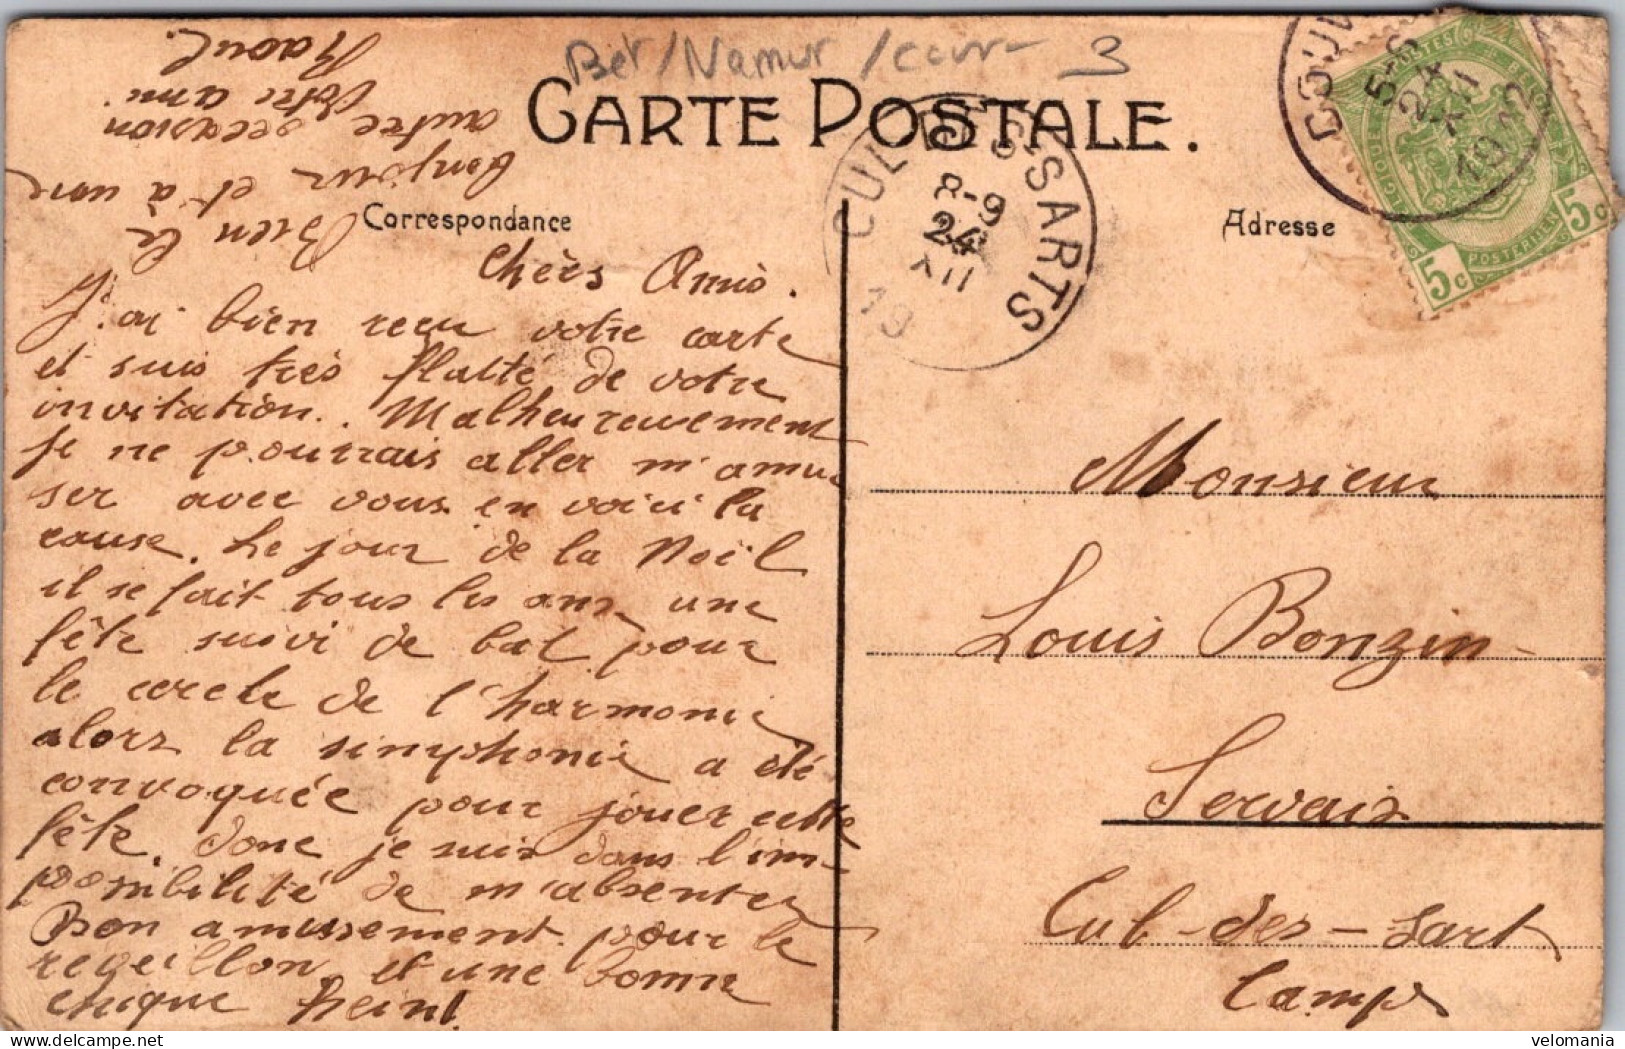 Bel/Namur/cour- 3
CARTE POSTALE.
Correspondance
Adresse
COUV
5-6
24
XII
1912
CUL DES SARTS
8-9
24
XII
19
BELGIQUE
POSTERIJEN
5c
5c
Chèrs Amis.
J'ai bien reçu votre carte
et suis très flatté de votre
invitation. Malheureusement
je ne pourrais aller m'amu
ser avec vous en voici la
cause. Le jour de la Noël
il se fait tous les ans une
fête suivi de bal pour
le cercle de l'harmonie
alors la simphonie a été
convoquée pour jouer cette
fête, donc je suis dans l'im-
possibilité de m'absenter
Bon amusement pour le
reveillon et une bonne
chique
Bien le
bonjour et à une
autre occasion
Votre ami.
Raoul.
Monsieur
Louis Bonzin-
Servais
Cul-des-Sart
Camps
velomania